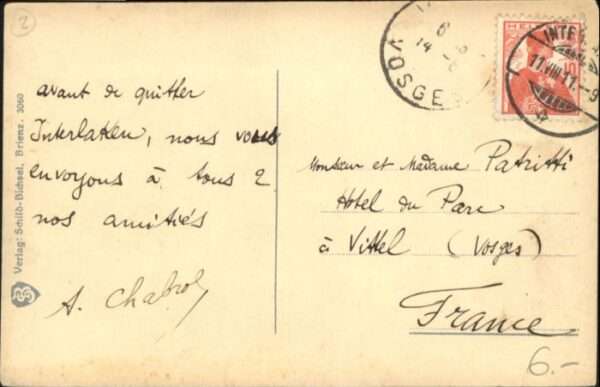 2
avant de quitter
Interlaken, nous vous
envoyons à tous 2
nos amitiés
A. Chabrol
Verlag: Schild-Bichsel, Brienz. 3060
VOSGES
HELVETIA
11.VIII.11.-9
Monsieur et Madame Patritti
Hotel du Parc
à Vittel (Vosges)
France
6.-